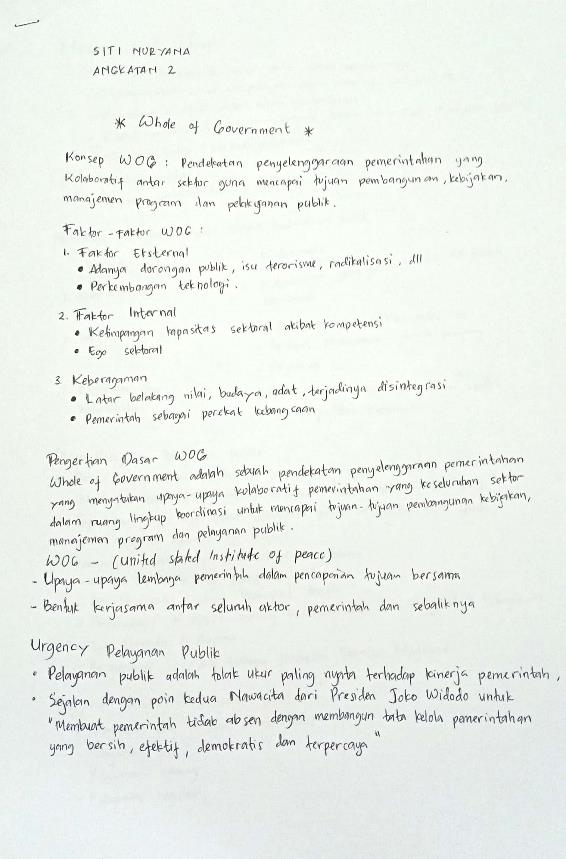 SITI NURYANA
ANGKATAN 2
* Whole of Government *
Konsep WOG : Pendekatan penyelenggaraan pemerintahan yang
Kolaboratif antar sektor guna mencapai tujuan pembangunan, kebijakan,
manajemen program dan pelayanan publik.
Faktor-faktor WOG :
1. Faktor Eksternal
• Adanya dorongan publik, isu terorisme, radikalisasi, dll
• Perkembangan teknologi.
2. Faktor Internal
• Ketimpangan kapasitas sektoral akibat kompetensi
• Ego sektoral
3. Keberagaman
• Latar belakang nilai, budaya, adat, terjadinya disintegrasi
• Pemerintah sebagai perekat kebangsaan
Pengertian Dasar WOG
Whole of Government adalah sebuah pendekatan penyelenggaraan pemerintahan
yang menyatukan upaya-upaya kolaboratif pemerintahan yang keseluruhan sektor
dalam ruang lingkup koordinasi untuk mencapai tujuan-tujuan pembangunan kebijakan,
manajemen program dan pelayanan publik.
WOG - (United stated Institute of peace)
- Upaya-upaya lembaga pemerintah dalam pencapaian tujuan bersama
- Bentuk kerjasama antar seluruh aktor, pemerintah dan sebaliknya
Urgency Pelayanan Publik
• Pelayanan publik adalah tolak ukur paling nyata terhadap kinerja pemerintah,
• Sejalan dengan poin kedua Nawacita dari Presiden Joko Widodo untuk
"Membuat pemerintah tidak absen dengan membangun tata kelola pemerintahan
yang bersih, efektif, demokratis dan terpercaya"